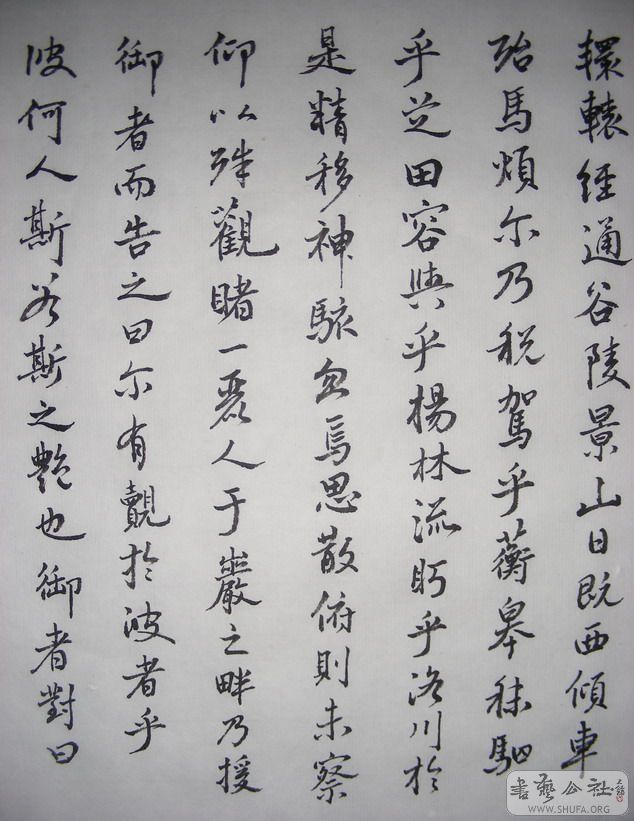 轘轅經通谷陵景山日既西傾車
殆馬煩尔乃税駕乎蘅皋秣駟
乎芝田容與乎楊林流眄乎洛川於
是精移神駭忽焉思散俯則未察
仰以殊觀睹一麗人于巖之畔乃援
御者而告之曰尔有覿於彼者乎
彼何人斯若斯之艷也御者對曰
書藝公社
WWW.SHUFA.ORG